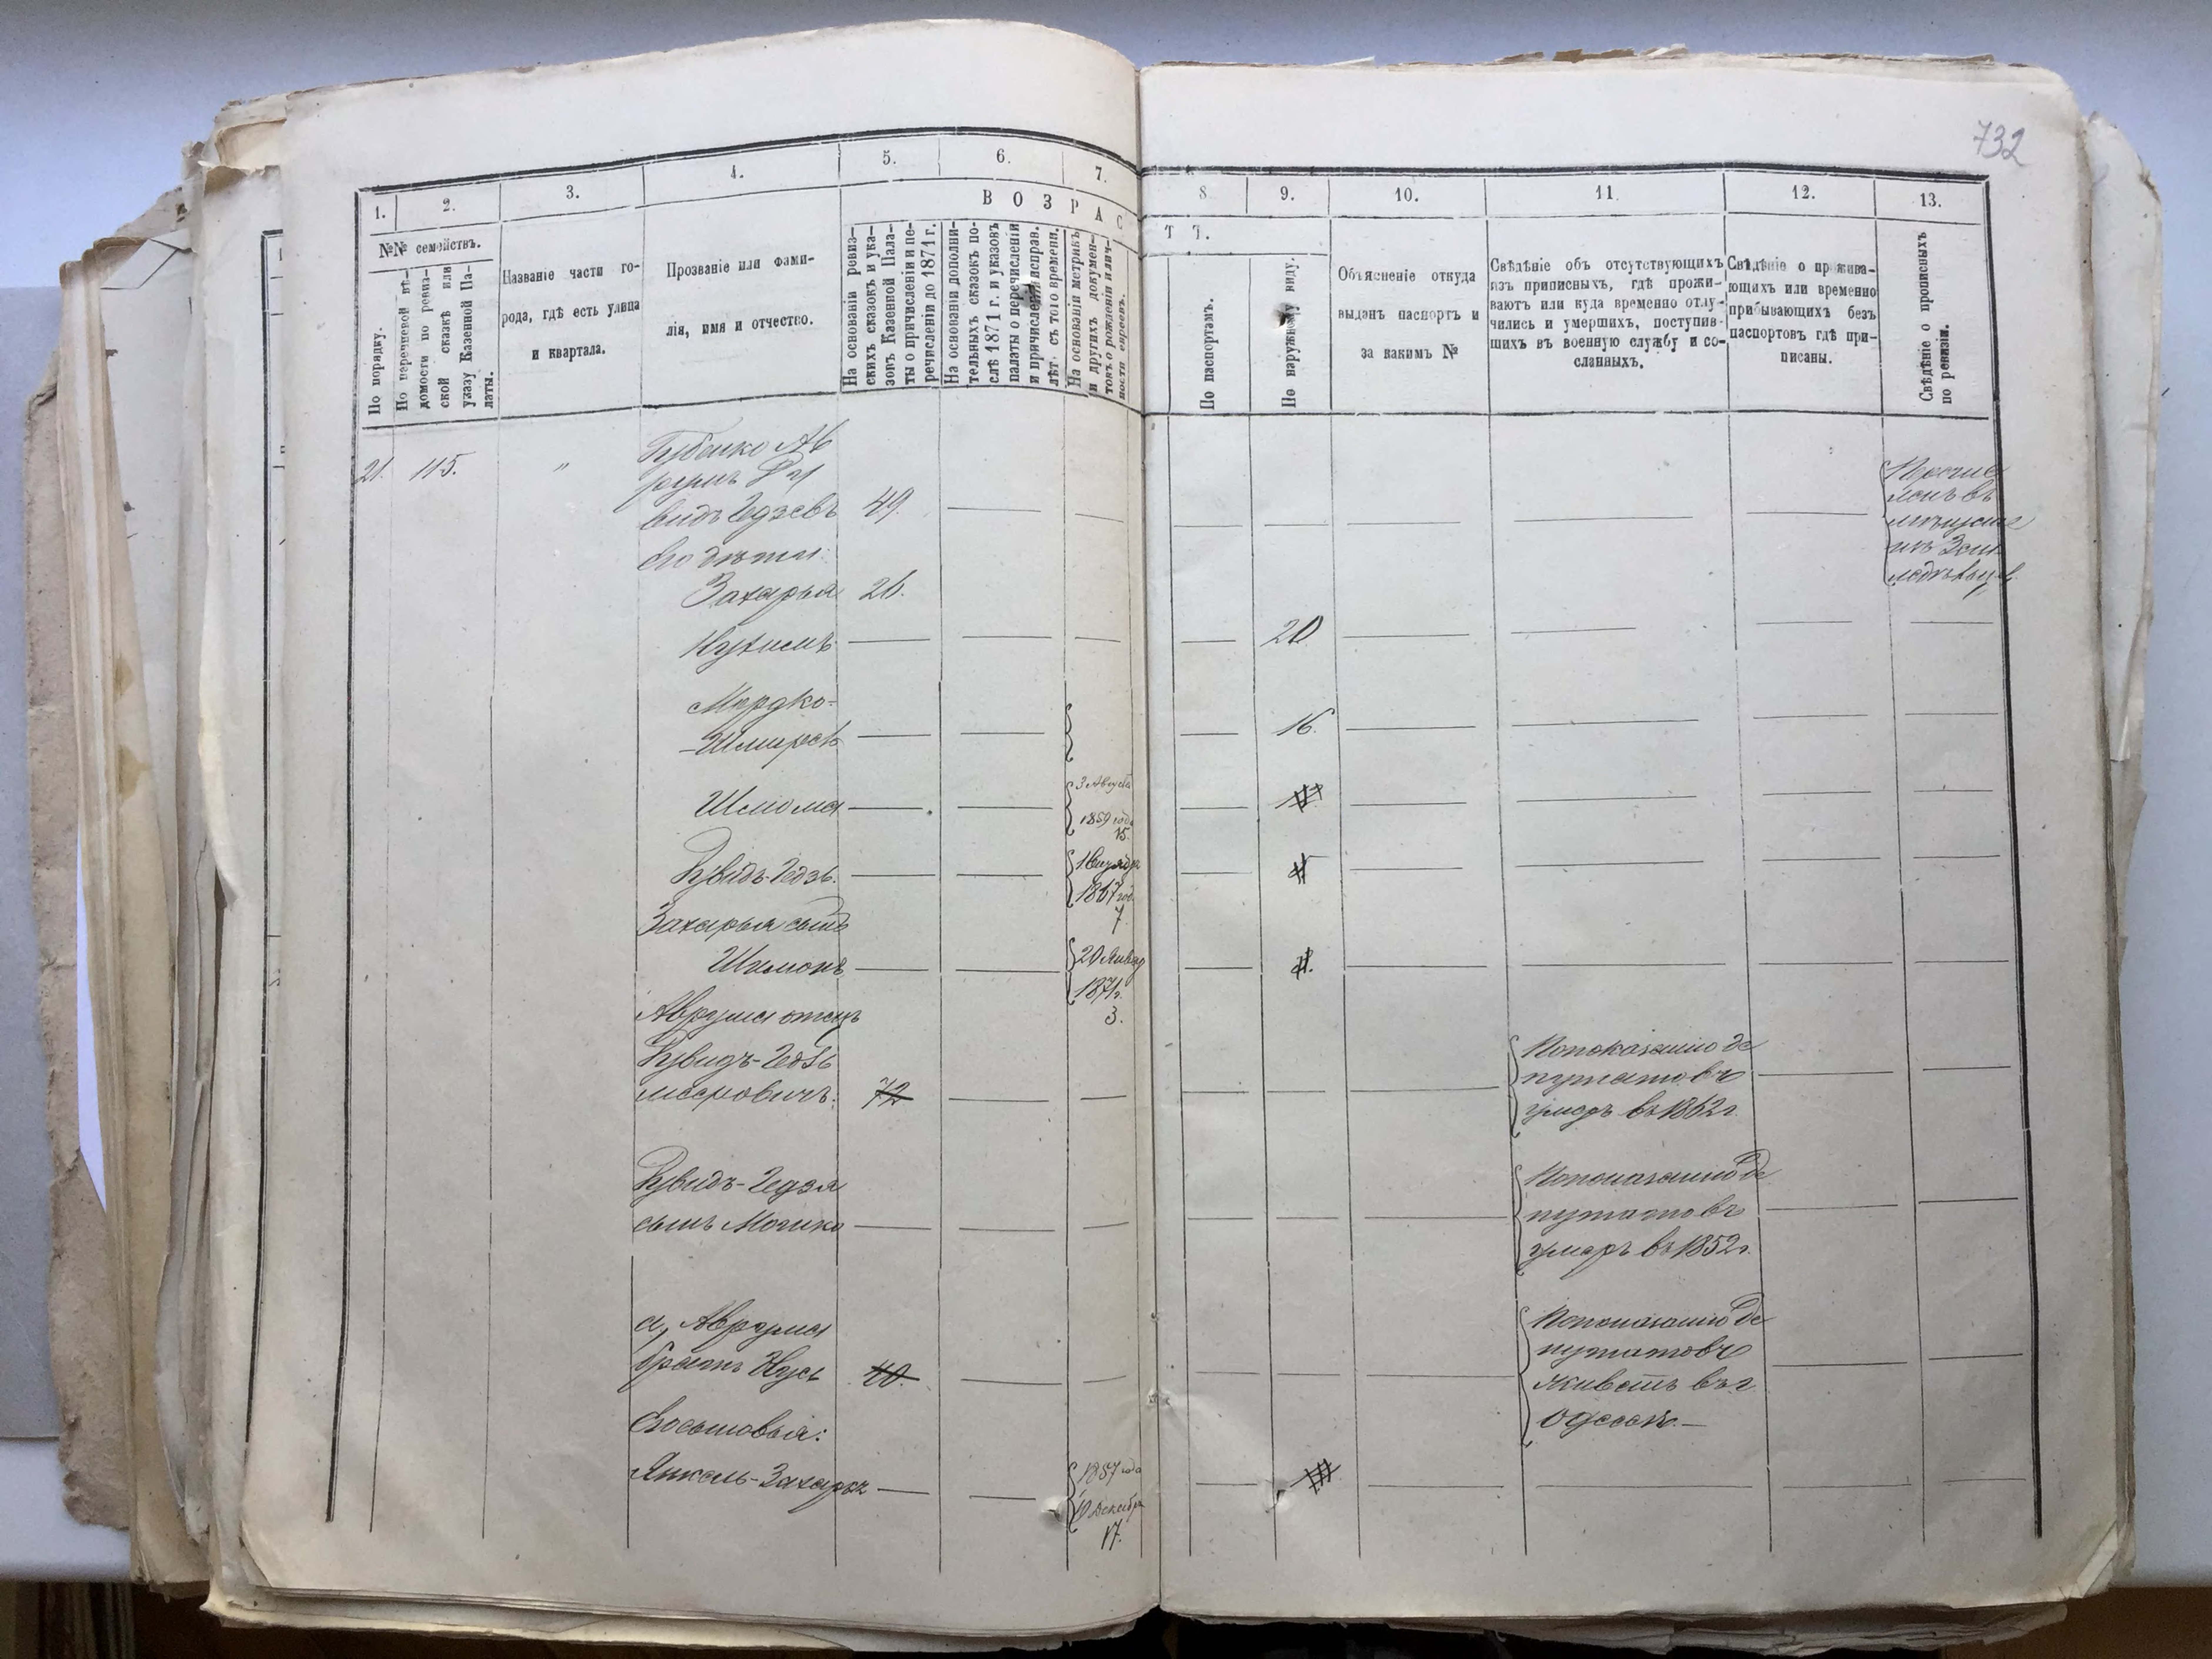 732
1.
2.
3.
4.
5.
6.
7.
8
9.
10.
11.
12.
13.
ВОЗРАС
ТЪ.
№№ семействъ.
По порядку.
По перечневой вѣ-
домости по ревиз-
ской сказкѣ или
указу Казенной Па-
латы.
Названіе части го-
рода, гдѣ есть улица
и квартала.
Прозваніе или фами-
лія, имя и отчество.
На основаніи ревиз-
скихъ сказокъ и ука-
зокъ Казенной Пала-
ты о причисленіи и пе-
речисленіи до 1871 г.
На основаніи дополни-
тельныхъ сказокъ по-
слѣ 1871 г. и указовъ
палаты о перечисленіи
и причисленіи исправ.
лѣт. съ того времени.
На основаніи метрикъ
и другихъ докумен-
товъ о рожденіи и лич-
ности евреевъ.
По паспортамъ.
По наружному виду.
Объясненіе откуда
выданъ паспортъ и
за какимъ №
Свѣдѣніе объ отсутствующихъ
изъ приписныхъ, гдѣ прожи-
ваютъ или куда временно отлу-
чились и умершихъ, поступив-
шихъ въ военную службу и со-
сланныхъ.
Свѣдѣніе о прожива-
ющихъ или временно
прибывающихъ безъ
паспортовъ гдѣ при-
писаны.
Свѣдѣніе о прописныхъ
по ревизіи.
21. 115. "
Ав
румъ
видъ Гедзевъ 49.
Его дѣти:
Захарья 26.
20
Мордко-
16.
Шлома
3 Августа
1859 года
15.
Дувидъ-Гедзь.
1867 год
7
Захарья сынъ
Шимонъ
20 Январ
1871г.
3.
Аврума отецъ
Дувидъ-Гедзь
72
По показанію де
путатовъ
умеръ въ 1862г.
Дувидъ-Гедзя
сынъ Мошко
По показанію де
путатовъ
умеръ въ 1852г.
а, Аврума
братъ Нусь 40.
По показанію де
путатовъ
живетъ въ г.
Одессѣ.
Его сыновья:
Янкель-Захарья
1857 года
10 Декабря
17.